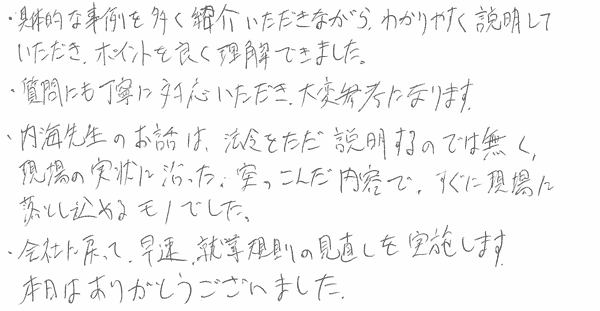 ・具体的な事例を多く紹介いただきながら、わかりやすく説明して
いただき、ポイントを良く理解できました。
・質問にも丁寧に対応いただき、大変参考になります。
・内海先生のお話は、法令をただ説明するのでは無く、
現場の実状に沿った、突っこんだ内容で、すぐに現場に
落とし込めるモノでした。
・会社に戻って、早速、就業規則の見直しを実施します。
本日はありがとうございました。